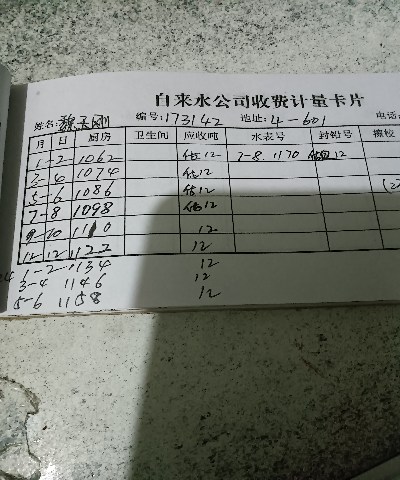 自来水公司收费计量卡片
姓名:魏天刚 编号:173142 地址:4-601 电话
月 日 厨房 卫生间 应收吨 水表号 封铅号
1-2 1062 估12 7-8 1170 估12
3-4 1074 估12
5-6 1086 估12
7-8 1098 估12
9-10 1110 12
11-12 1122 12
1-2 1134 12
3-4 1146 12
5-6 1158 12